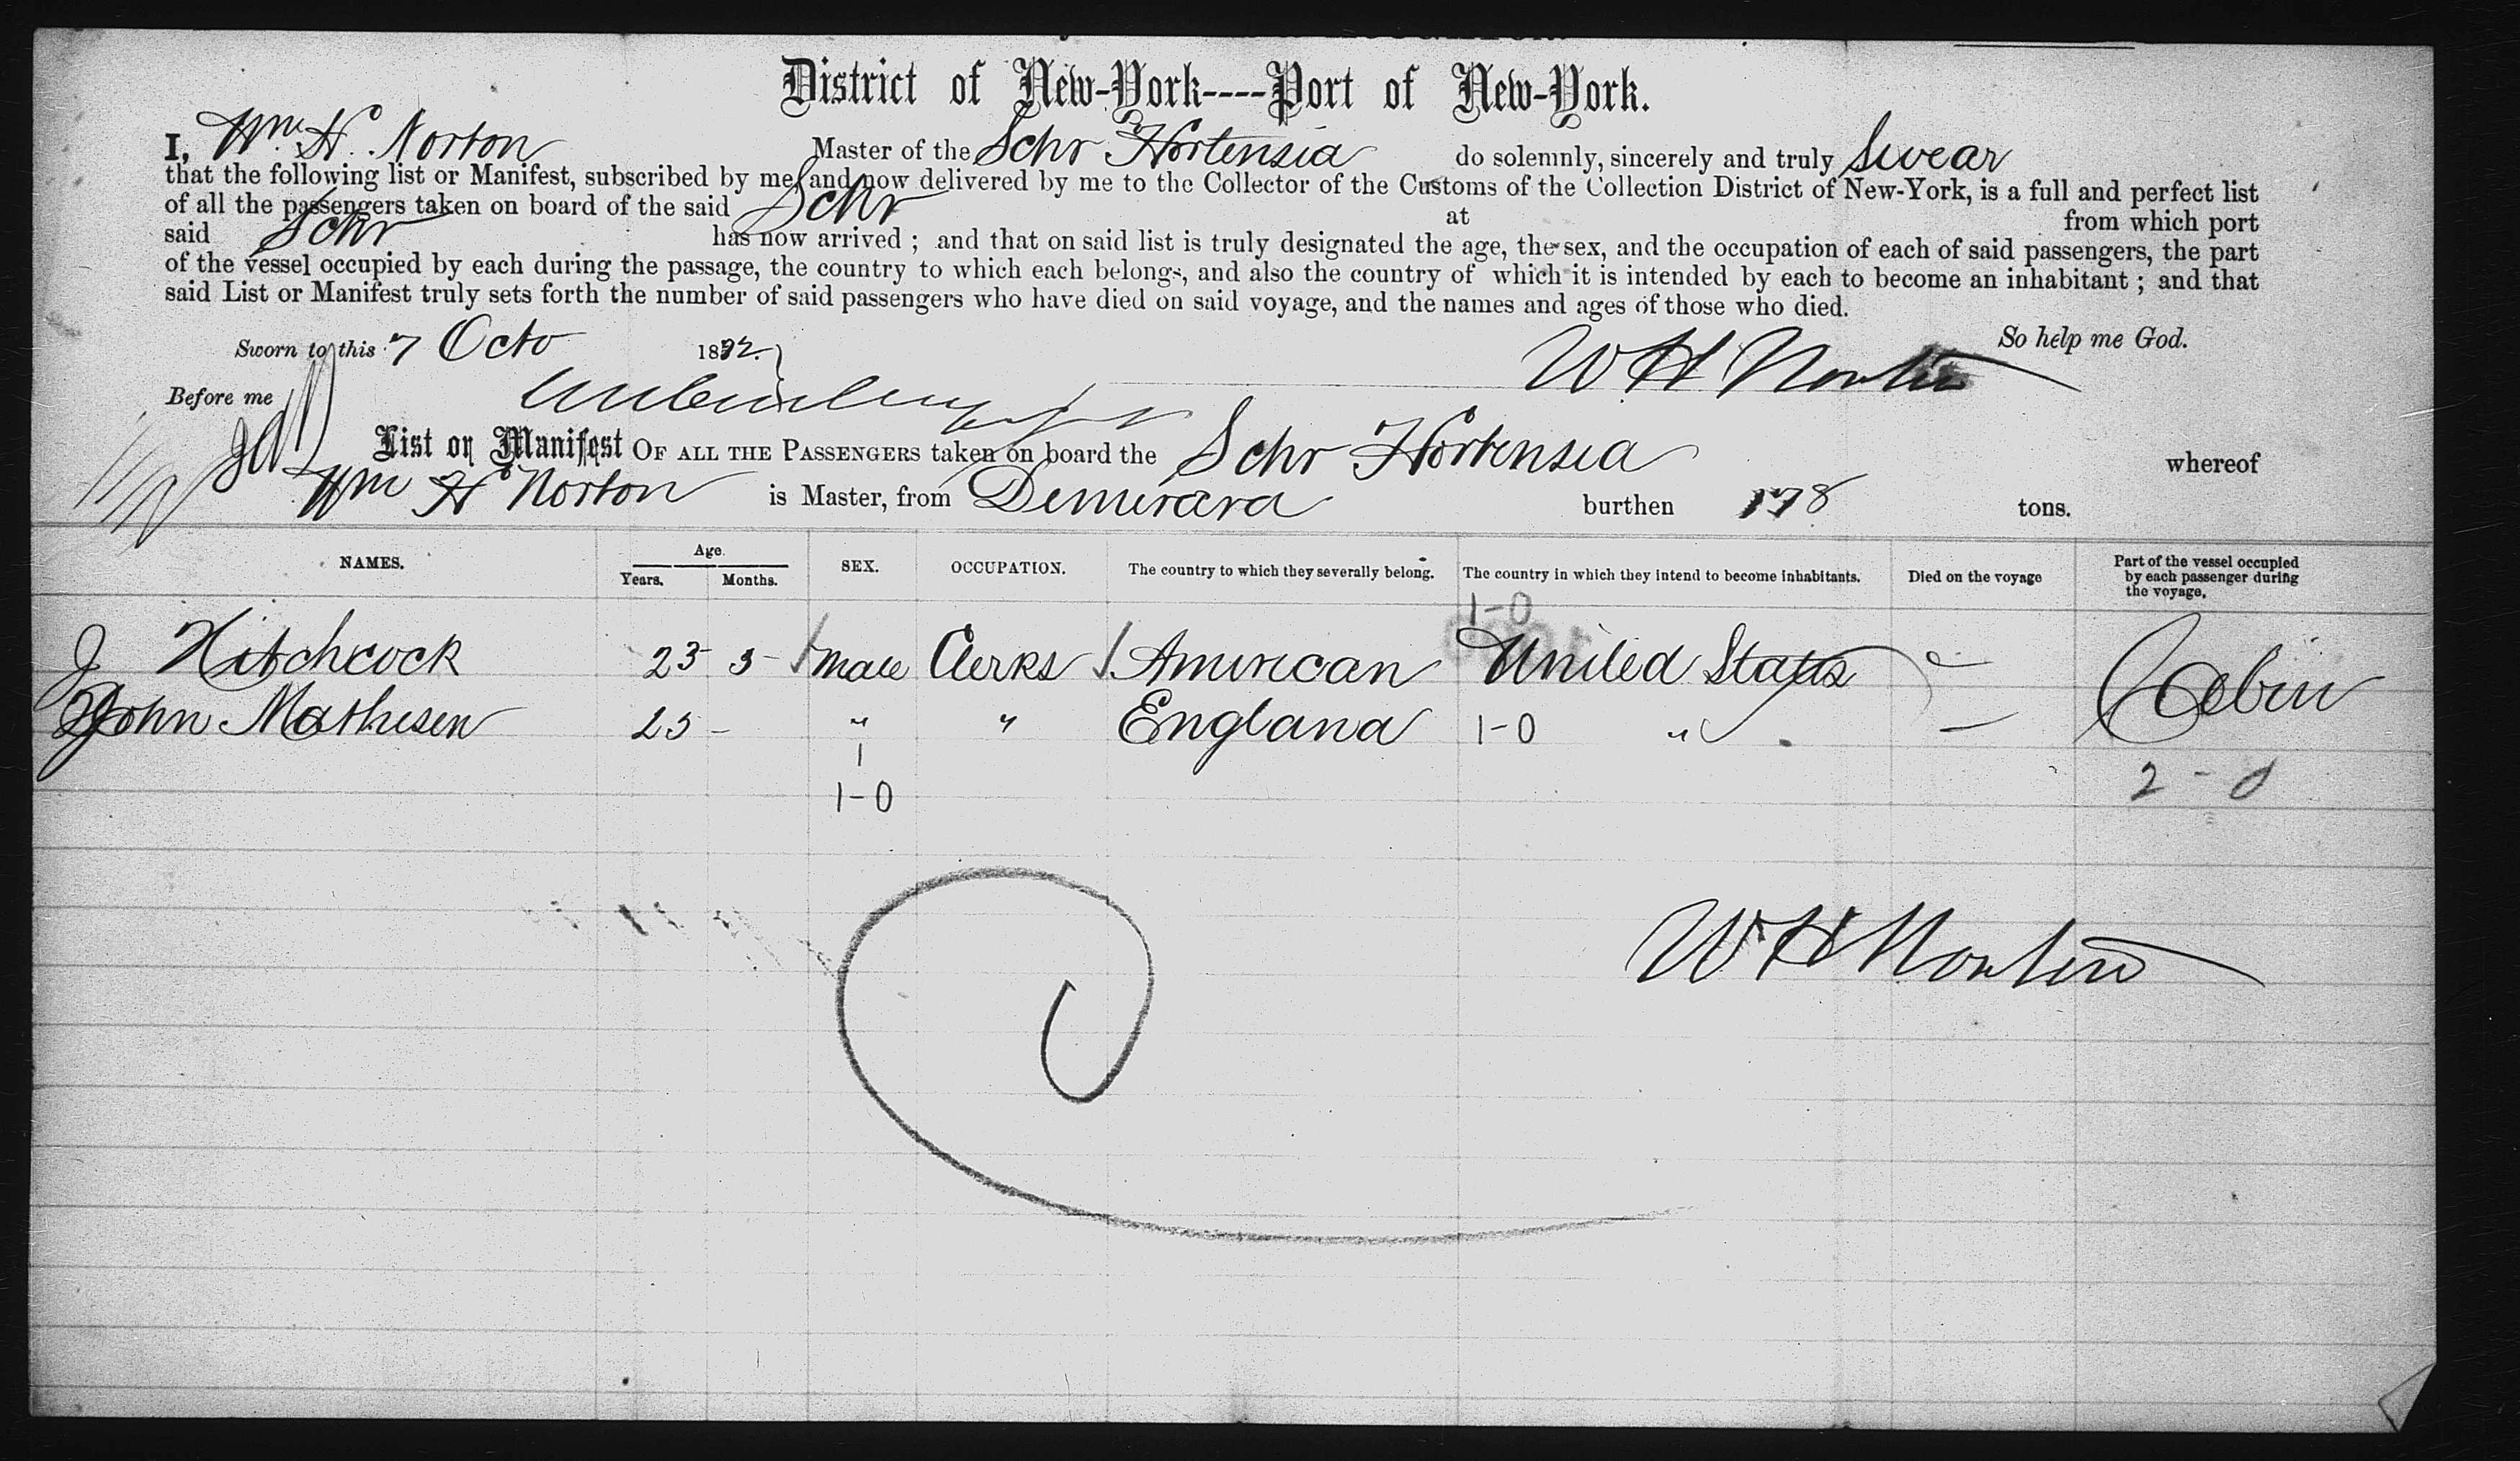 District of New-York----Port of New-York.
I, Wm. H. Norton Master of the Schr Hortensia do solemnly, sincerely and truly Swear
that the following list or Manifest, subscribed by me, and now delivered by me to the Collector of the Customs of the Collection District of New-York, is a full and perfect list
of all the passengers taken on board of the said Schr at from which port
said Schr has now arrived ; and that on said list is truly designated the age, the sex, and the occupation of each of said passengers, the part
of the vessel occupied by each during the passage, the country to which each belongs, and also the country of which it is intended by each to become an inhabitant ; and that
said List or Manifest truly sets forth the number of said passengers who have died on said voyage, and the names and ages of those who died.
Sworn to this 7 Octo 18 So help me God.
Before me W H Norton
List or Manifest OF ALL THE PASSENGERS taken on board the Schr Hortensia whereof
Wm H Norton is Master, from Demerara burthen 178 tons.
NAMES. Age. Years. Months. SEX. OCCUPATION. The country to which they severally belong. The country in which they intend to become inhabitants. Died on the voyage Part of the vessel occupied by each passenger during the voyage.
1-0
J Hitchcock 23 male Clerks American United States Cabin
John Mathesen 25 - " " England 1-0 " —
1
1-0 2-0
W H Norton